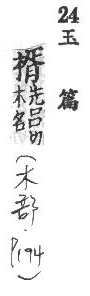 24
玉篇
楈先呂切
木名
(木部·P194)